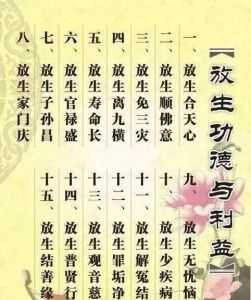 【放生功德与利益】
一、放生合天心
二、放生顺佛意
三、放生免三灾
四、放生离九横
五、放生寿命长
六、放生官禄盛
七、放生子孙昌
八、放生家门庆
九、放生无忧恼
十、放生少疾病
十一、放生解冤结
十二、放生罪垢净
十三、放生观音慈
十四、放生普贤行
十五、放生结善缘